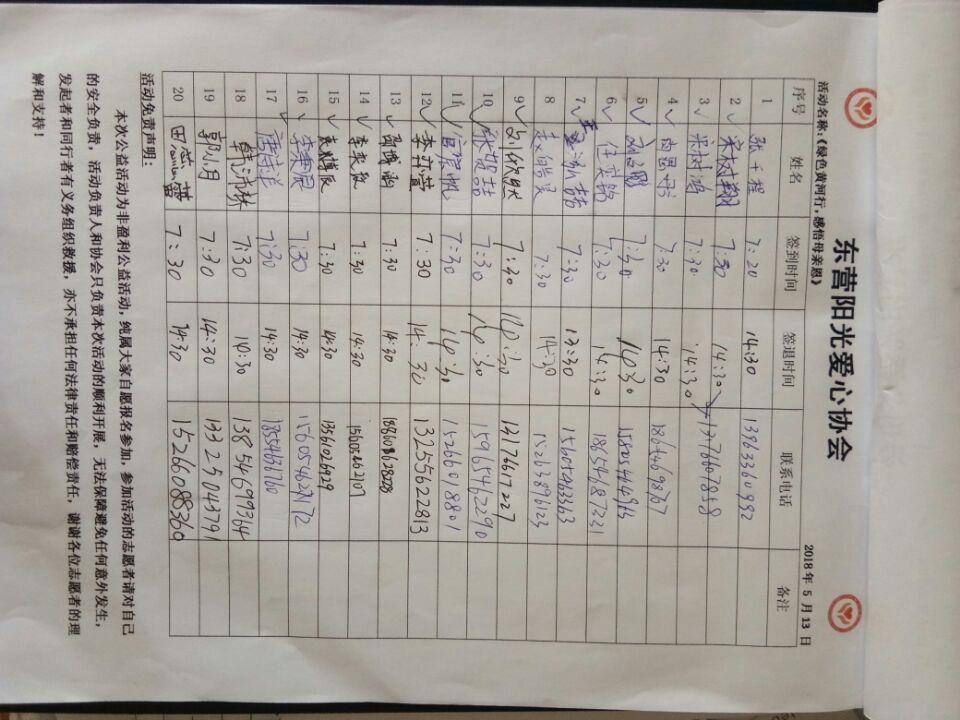 东营阳光爱心协会
活动名称:《绿色黄河行,感悟母亲恩》 2018 年 5 月 13 日
序号 姓名 签到时间 签退时间 联系电话 备注
1 张千程 7:20 14:30 13963360992
2 ✓ 宋树翔 7:30 14:30
3 ✓ 宋树鸿 7:30 14:30 13176607858
4 ✓ 7:30 14:30
5 ✓ 7:30 14:30
6 ✓ 任奕铭 7:30 14:30 18654687331
7 ✓ 7:30 13:30 15605463363
8 7:30 14:30 15263896123
9 ✓ 刘欣欣 7:30 14:30 13176617227
10 ✓ 7:30 14:30 15965462290
11 ✓ 7:30 14:30 15266018801
12 ✓ 李科萱 7:30 14:30 13255622813
13 ✓ 7:30 14:30
14 ✓ 7:30 14:30
15 ✓ 7:30 14:30 13561026929
16 ✓ 7:30 14:30
17 ✓ 7:30 14:30
18 韩沛霖 7:30 10:30 13854699364
19 郭小月 7:30 14:30 13325043791
20 田蕊蕾 7:30 14:30 15266088360
活动免责声明:
本次公益活动为非盈利公益活动,纯属大家自愿报名参加,参加活动的志愿者请对自己
的安全负责,活动负责人和协会只负责本次活动的顺利开展,无法保障避免任何意外发生,
发起者和同行者有义务组织救援,亦不承担任何法律责任和赔偿责任,谢谢各位志愿者的理
解和支持!